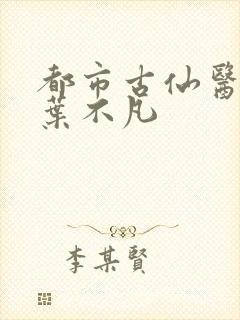 都市古仙醫
葉不凡
李某賢